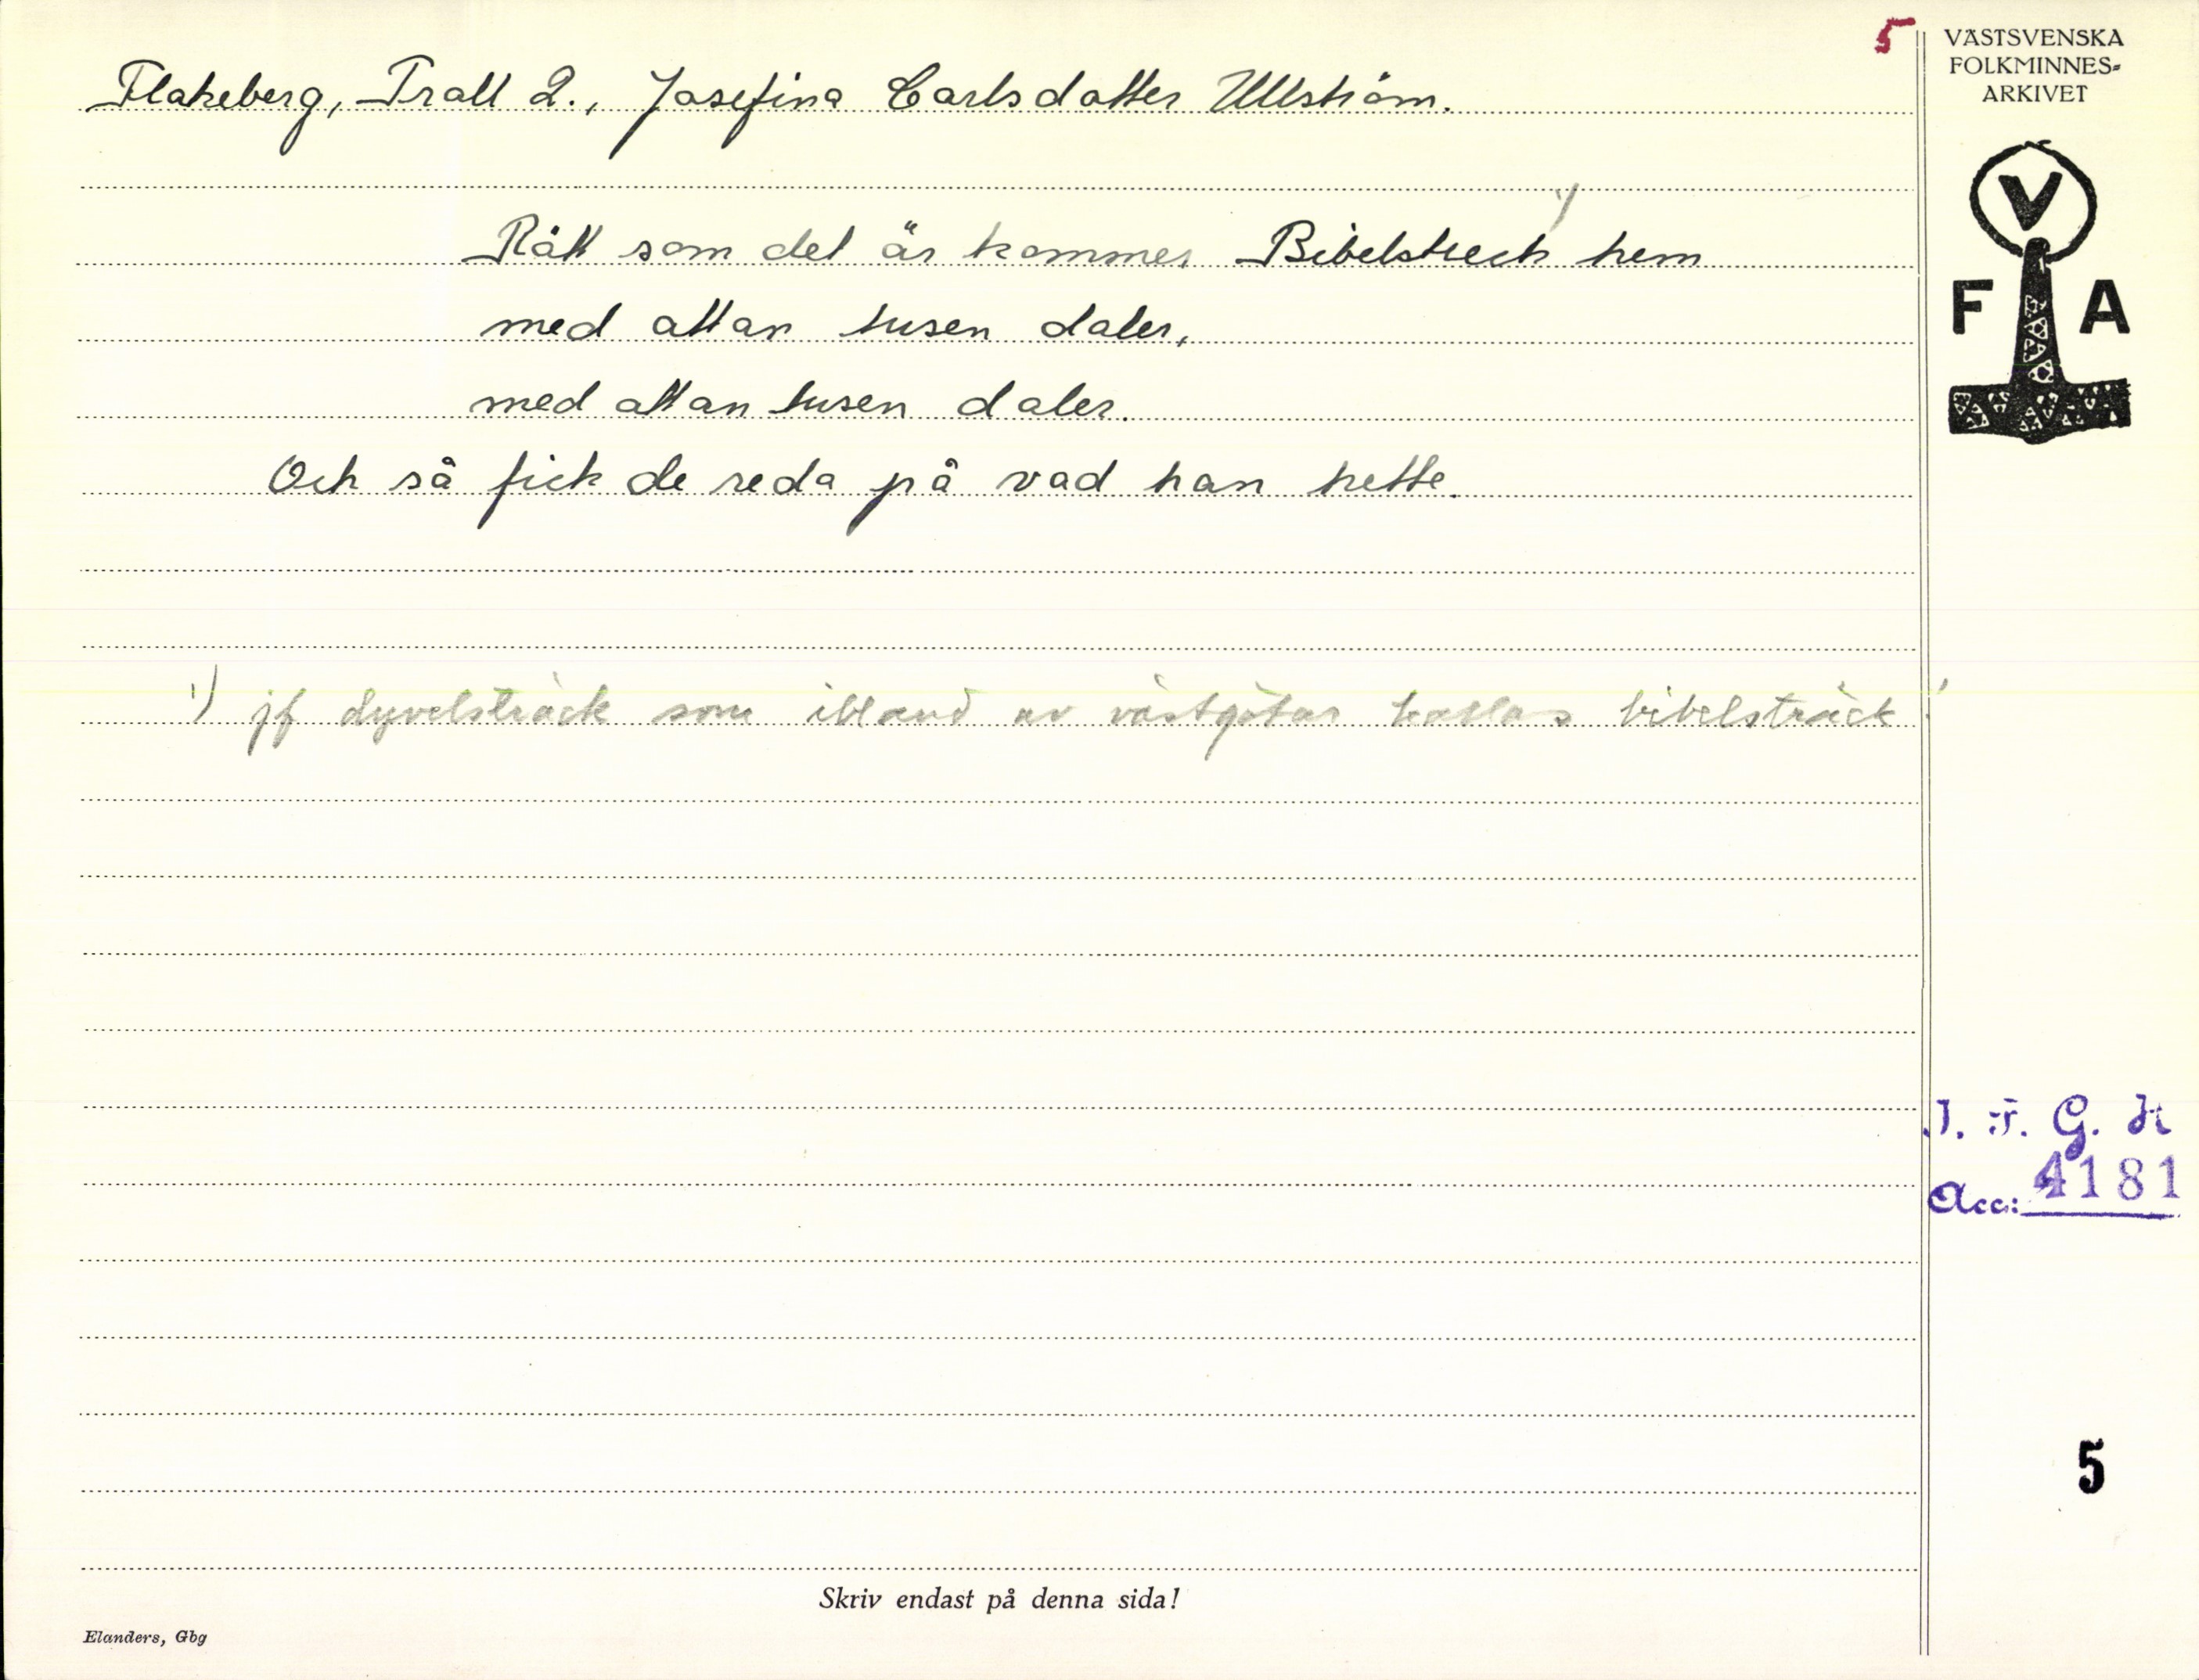 5
VÄSTSVENSKA
FOLKMINNES-
ARKIVET
V
F A
Flakeberg, Trall 2., Josefina Carlsdotter Ullström.
Rätt som det är kommer Bibelstreck 1) hem
med attan tusen daler,
med attan tusen daler.
Och så fick de reda på vad han hette.
1) jf dyvelsträck som ibland av västgötar kallas bibelsträck!
I. F. G. H
Acc: 4181
5
Skriv endast på denna sida!
Elanders, Gbg